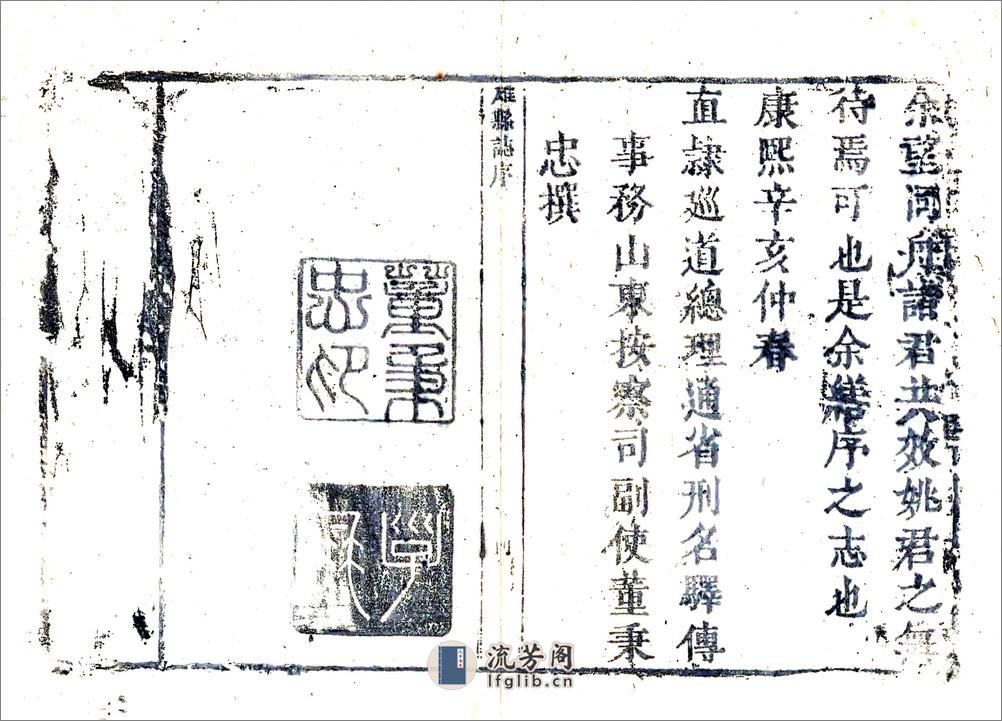 余望同舟諸君共效姚君之無
待焉可也是余繕序之志也
康熙辛亥仲春
直隸巡道總理通省刑名驛傳
事務山東按察司副使董秉
忠撰
雄縣誌序
四
董秉
忠印
流芳阁
lfglib.cn